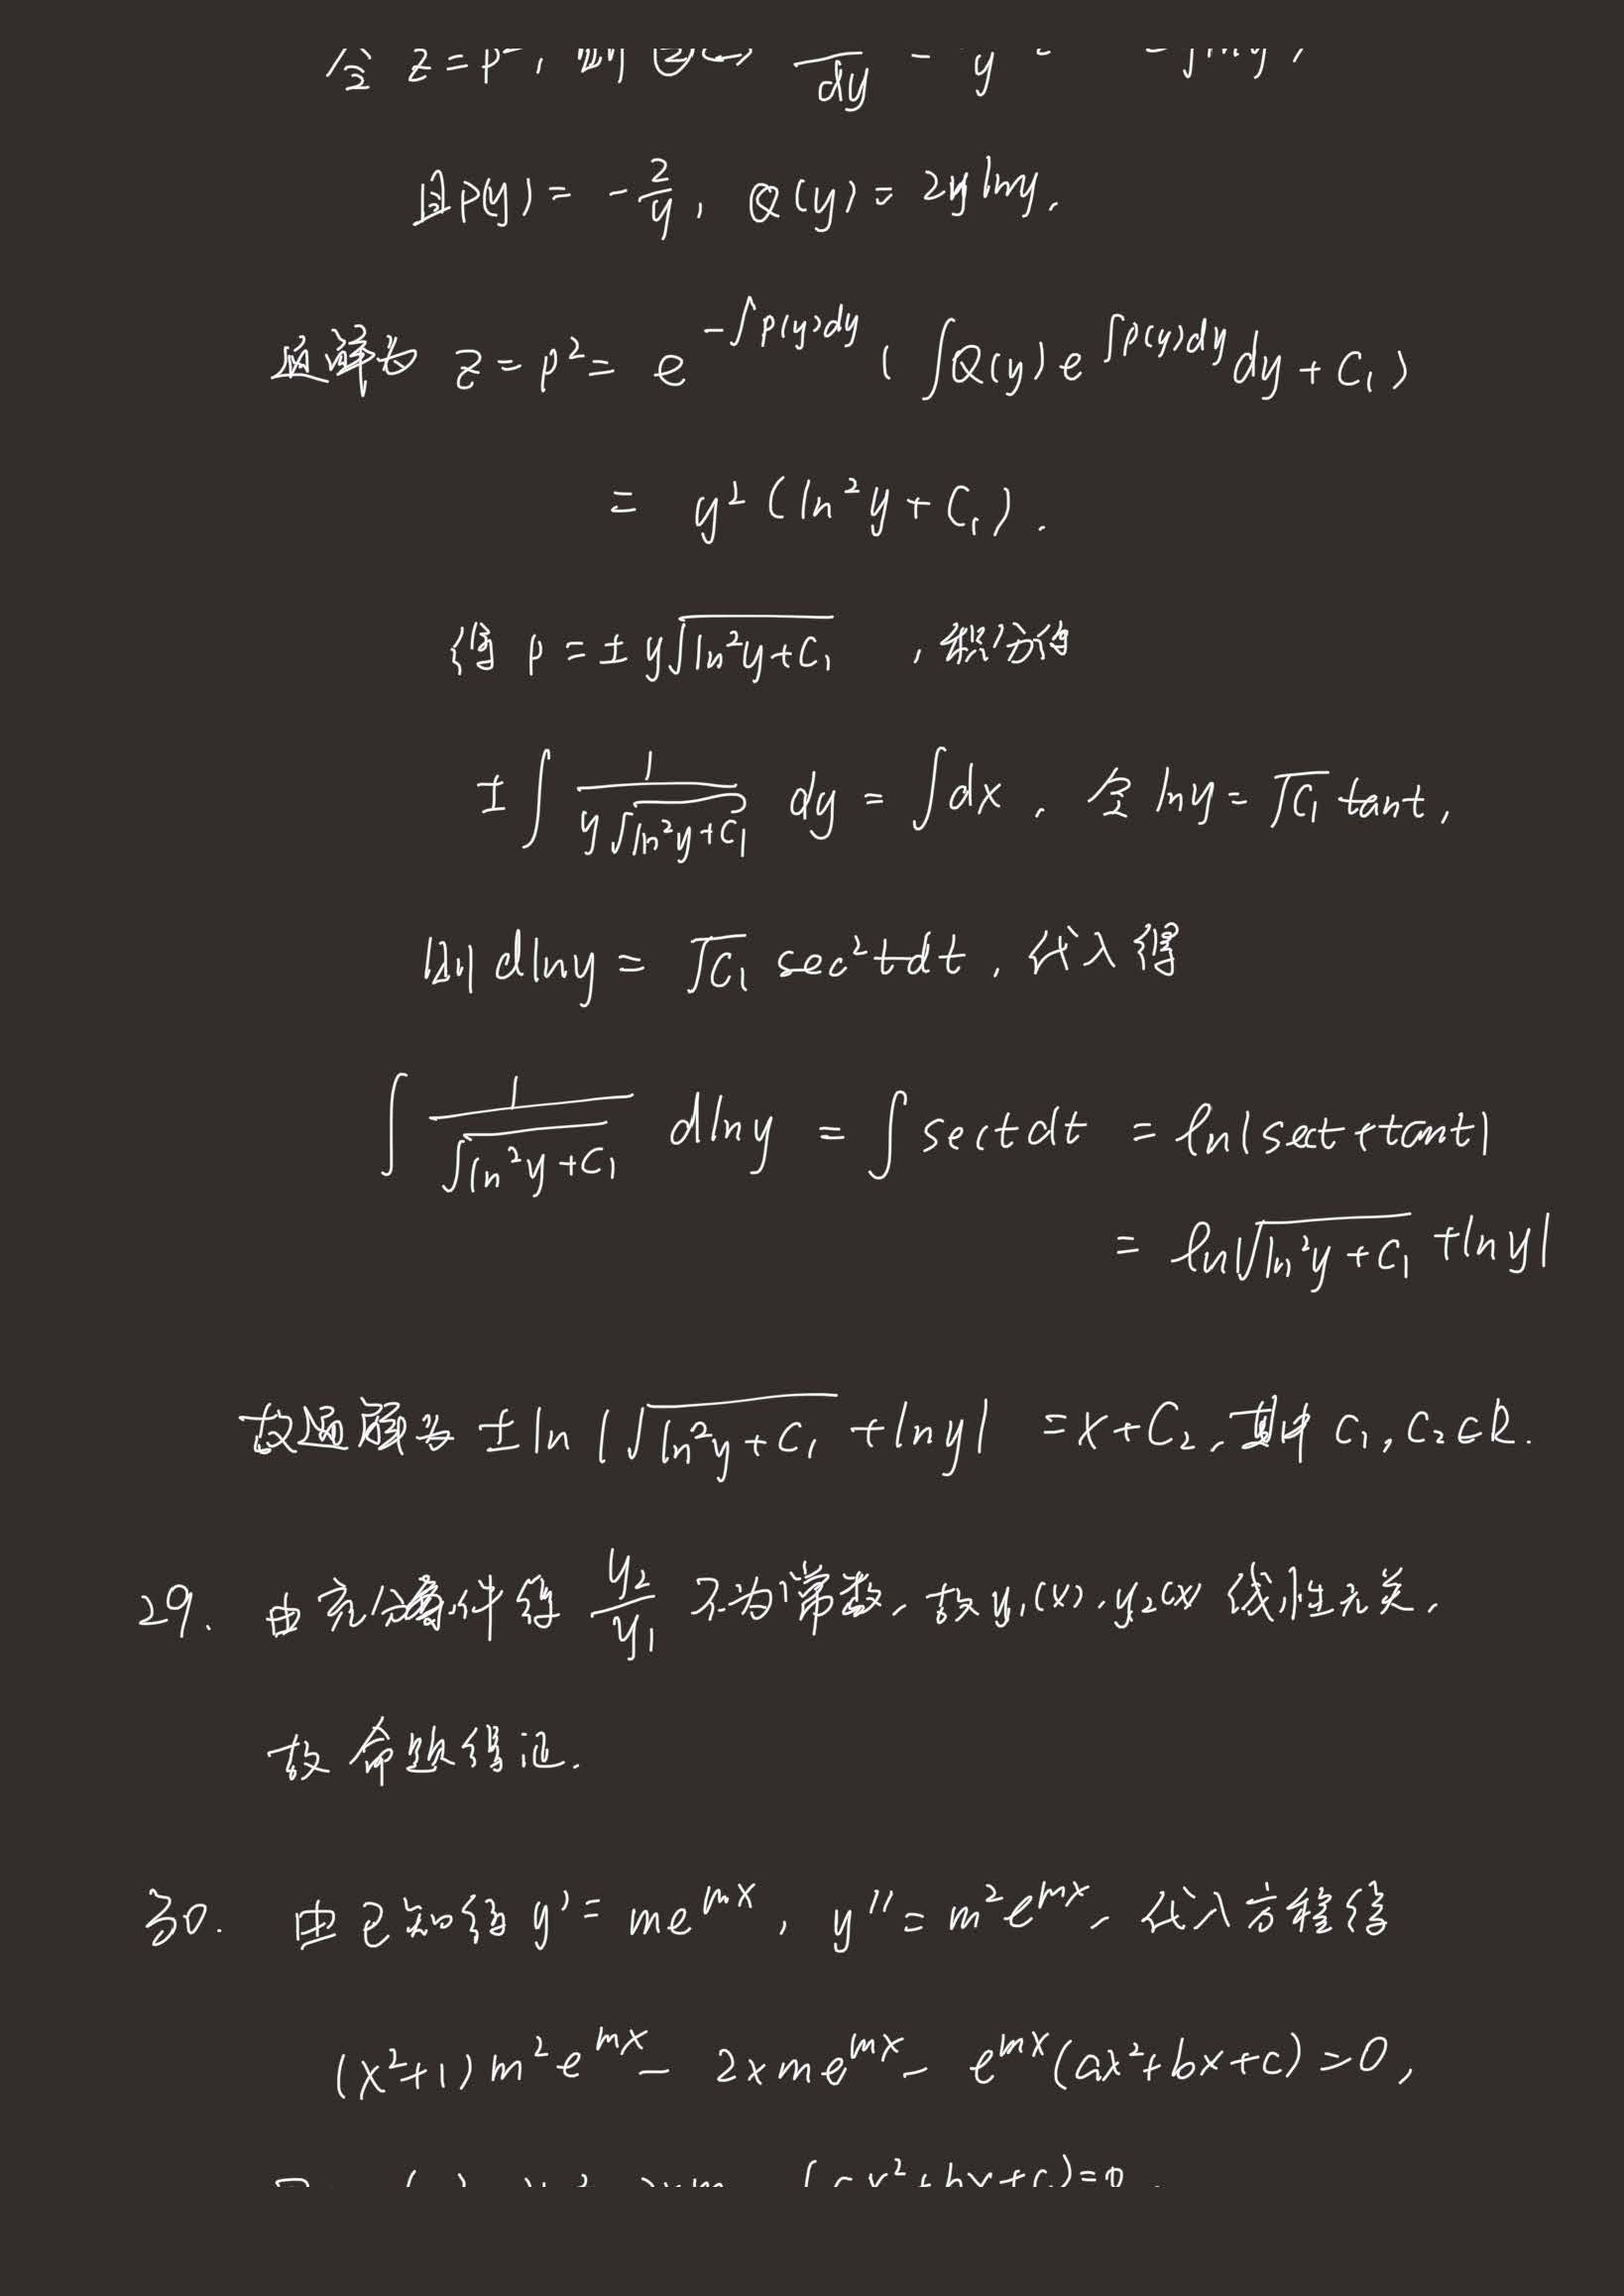 令 z=p², 则②⇔ dy - y
且p(y) = -2/y, Q(y) = 2ylny.
通解为 z=p²= e^{-∫p(y)dy} (∫Q(y)e^{∫p(y)dy}dy+C₁)
= y²(ln²y+C₁).
得 p=±y√(ln²y+C₁) ,积分得
±∫ 1/(y√(ln²y+C₁)) dy = ∫dx, 令 lny=√C₁ tant,
则 dlny = √C₁ sec²tdt, 代入得
∫ 1/√(ln²y+C₁) dlny = ∫sectdt = ln|sect+tant|
= ln|√(ln²y+C₁) +lny|
故通解为 ±ln|√(ln²y+C₁) +lny| =x+C₂, 其中 C₁,C₂∈R.
29. 由充分条件得 y₂/y₁ 不为常数, 故y₁(x), y₂(x) 线性无关,
故命题得证.
30. 由已知得 y'=me^{mx}, y''=m²e^{mx}, 代入方程得
(x²+1)m²e^{mx} - 2xme^{mx} - e^{mx}(ax²+bx+c)=0,
(ax²+bx+c)=0